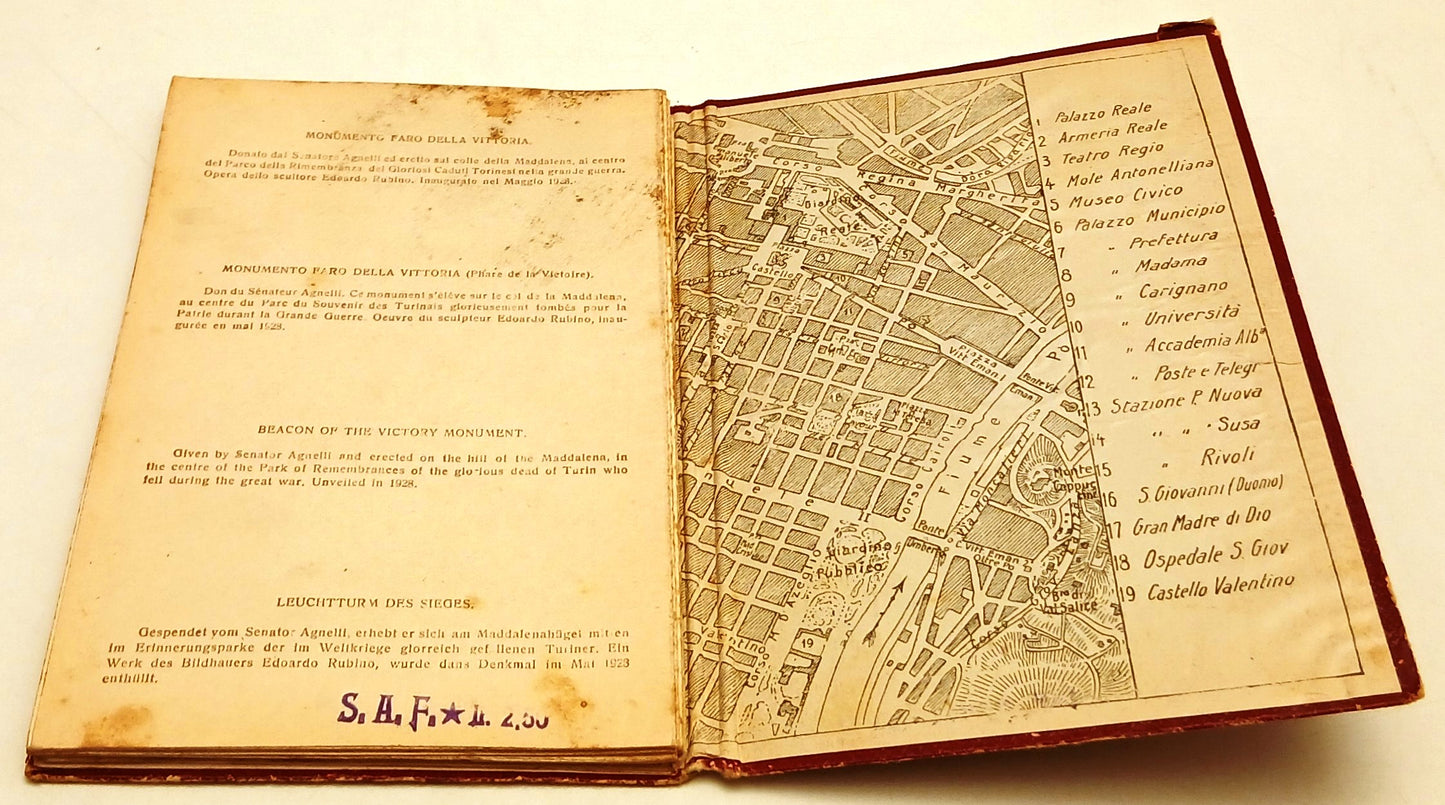 MONUMENTO FARO DELLA VITTORIA.
Donato dal Senatore Agnelli ed eretto sul colle della Maddalena, al centro
del Parco della Rimembranza dei Gloriosi Caduti Torinesi nella grande guerra.
Opera dello scultore Edoardo Rubino. Inaugurato nel Maggio 1928.
MONUMENTO FARO DELLA VITTORIA (Phare de la Victoire).
Don du Sénateur Agnelli. Ce monument s'élève sur le col de la Maddalena,
au centre du Parc du Souvenir des Turinais glorieusement tombés pour la
Patrie durant la Grande Guerre. Oeuvre du sculpteur Edoardo Rubino, inau-
gurée en mai 1928.
BEACON OF THE VICTORY MONUMENT.
Given by Senator Agnelli and erected on the hill of the Maddalena, in
the centre of the Park of Remembrances of the glorious dead of Turin who
fell during the great war. Unveiled in 1928.
LEUCHTTURM DES SIEGES.
Gespendet vom Senator Agnelli, erhebt er sich am Maddalenahügel mitten
im Erinnerungsparke der im Weltkriege glorreich gefallenen Turiner. Ein
Werk des Bildhauers Edoardo Rubino, wurde dans Denkmal im Mai 1928
enthüllt.
S. A. F. ★ L. 2,50
Corso Regina Margherita
Fiume
Dora
Giardino
Reale
Corso San Maurizio
Piazza
Castello
Piazza
Vitt. Eman I
Ponte Vit.
Eman I
Po
Fiume
Corso Cairoli
Via Moncalieri
Monte
Cappuc
cini
nuele II
Ponte
Umberto
C. Vitt. Eman
Oltre Po
Giardino
Pubblico
M. d'Azeglio
Valentino
Corso
19
Val Salice
Corso
1 Palazzo Reale
2 Armeria Reale
3 Teatro Regio
4 Mole Antonelliana
5 Museo Civico
6 Palazzo Municipio
7 „ Prefettura
8 „ Madama
9 „ Carignano
10 „ Università
11 „ Accademia Albª
12 „ Poste e Telegr
13 Stazione P. Nuova
14 „ „ Susa
15 „ Rivoli
16 S. Giovanni (Duomo)
17 Gran Madre di Dio
18 Ospedale S. Giov
19 Castello Valentino